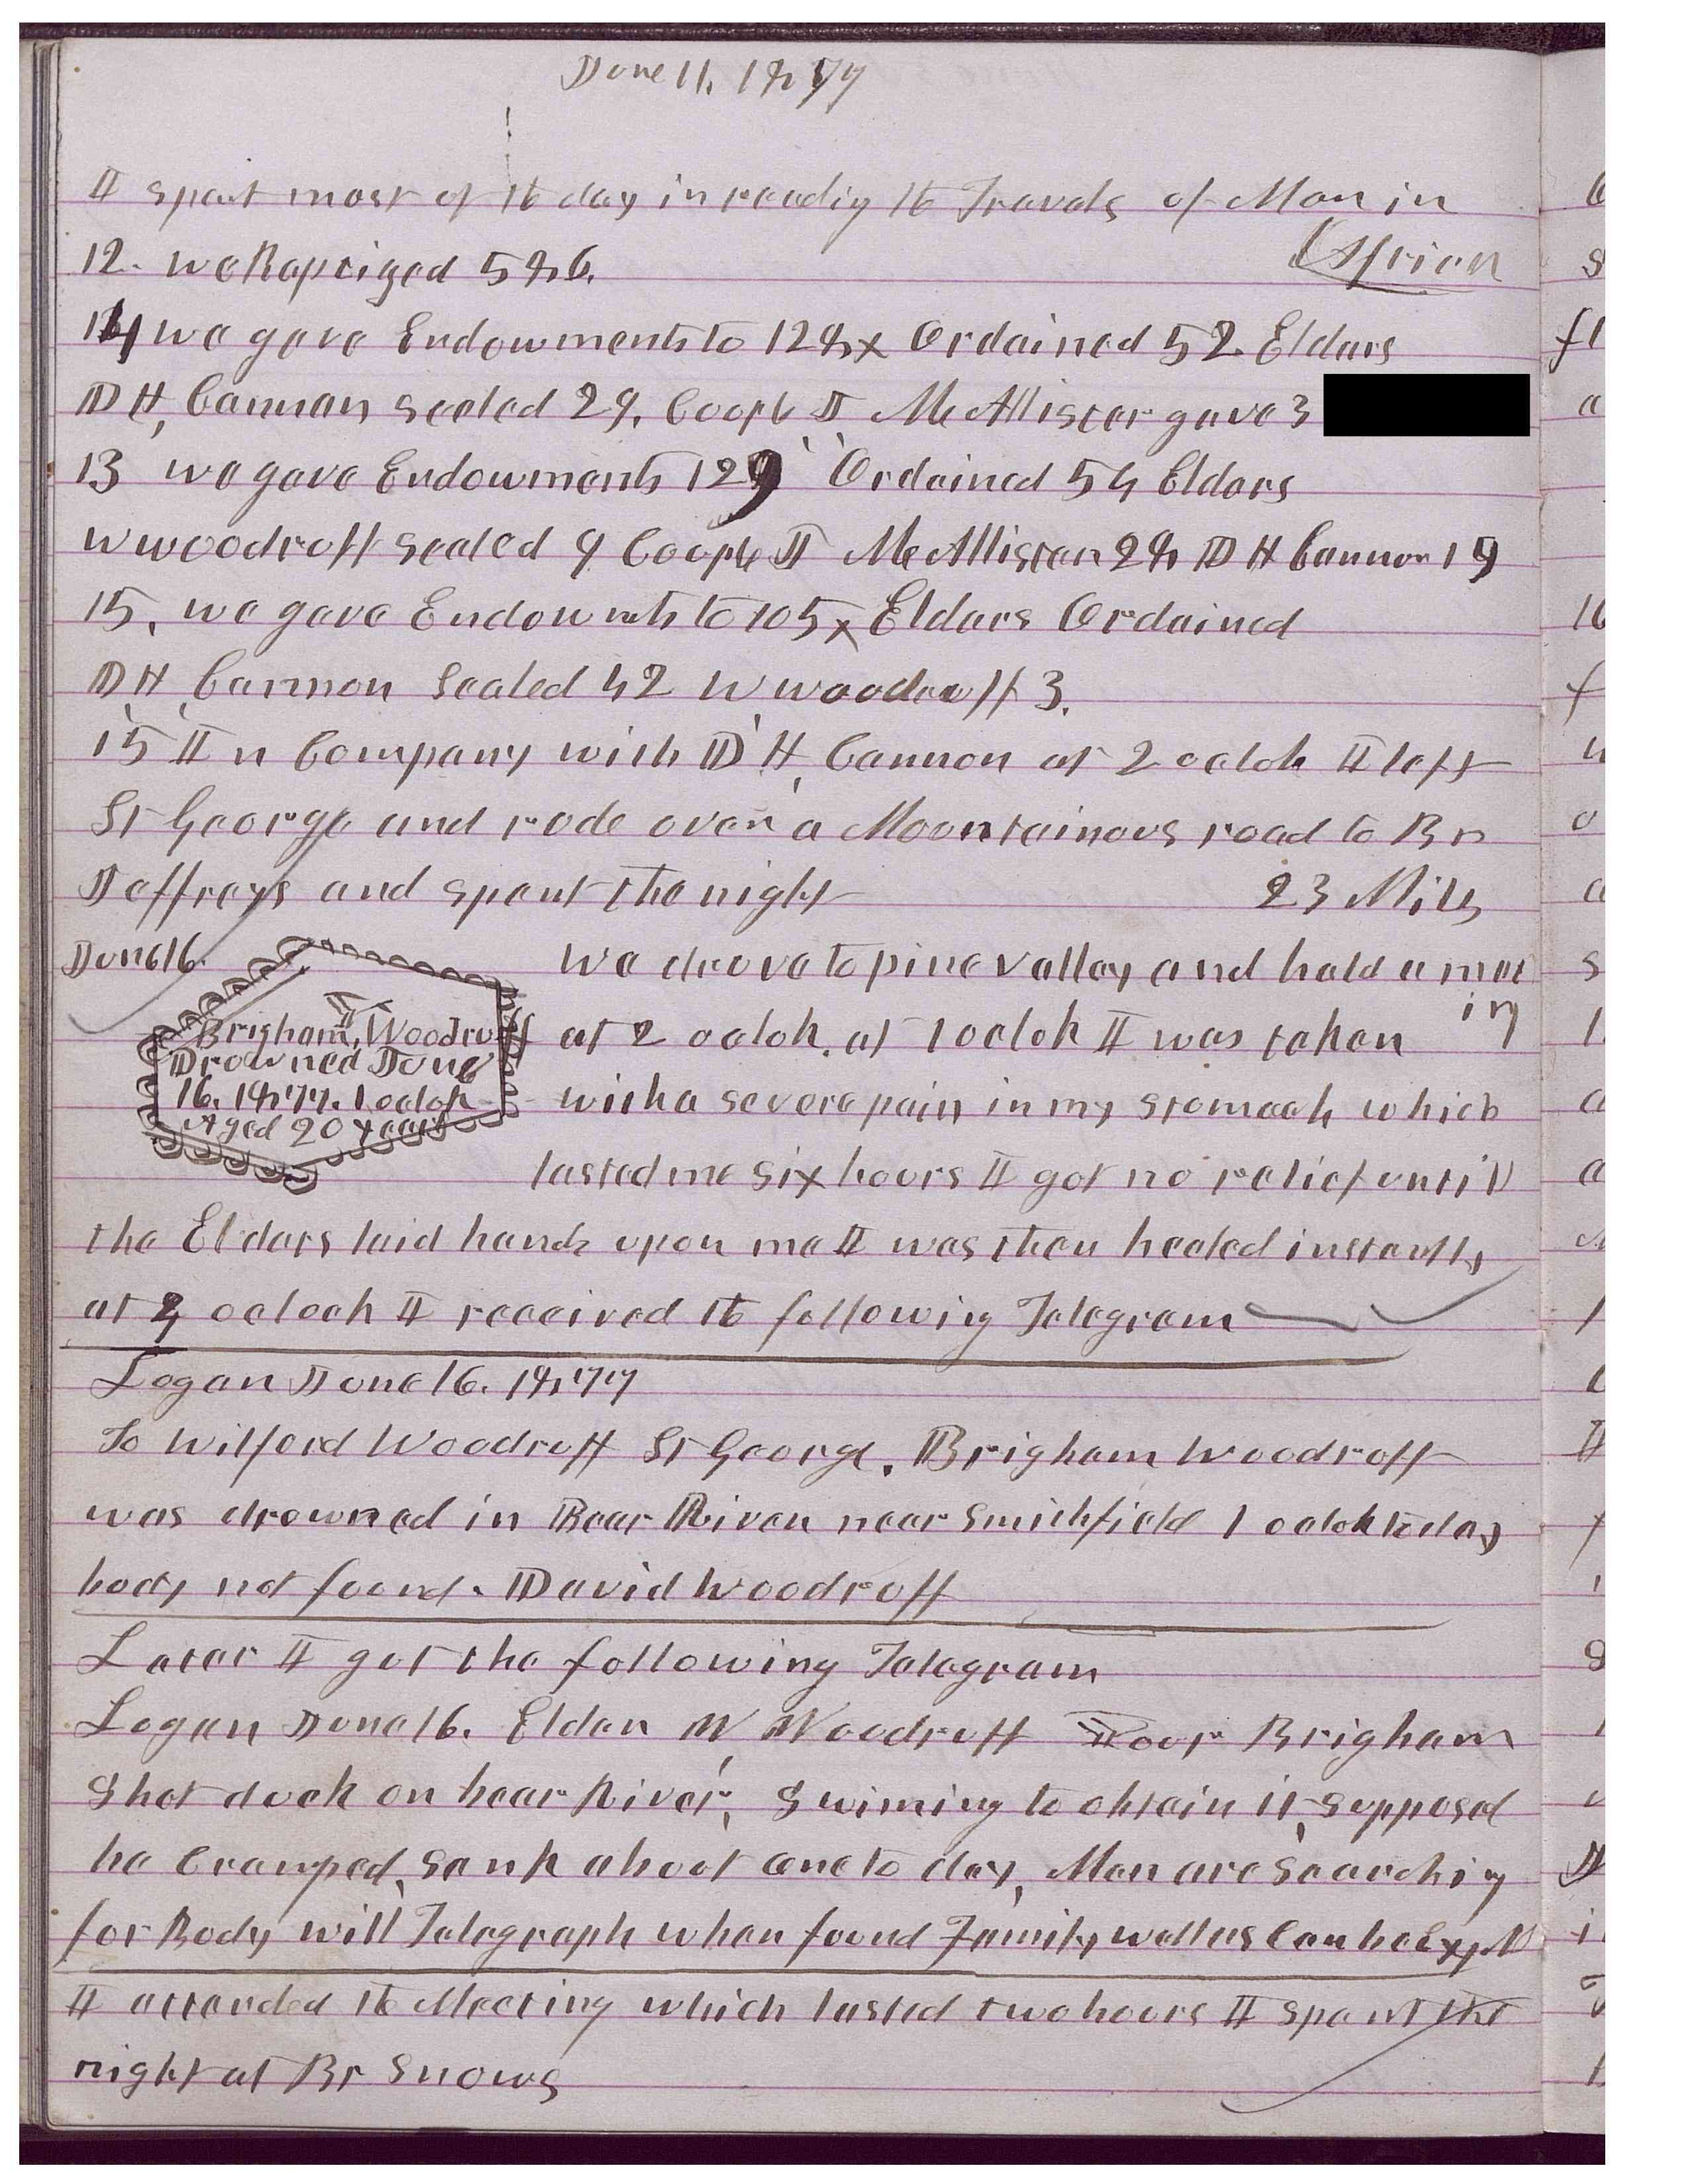 June 11, 1877
I spent most of the day in reading the Travels of Man in
Africa
12. we Baptized 586.
14 we gave Endowments to 128, Ordained 52 Elders
D H, Cannan sealed 29, Coopl J McAllister gave 3
13 we gave Endowments 129 Ordained 54 Elders
W woodruff sealed 9 Coople J McAllister 28 D H Cannon 19
15, we gave Endowmts to 105, Elders Ordained
D, H, Cannon Sealed 42 W woodruff 3.
15 In Company with D, H, Cannon at 2 oclok I left
St George and rode over a Mountainous road to Br
Jeffreys and spent the night 23 Miles
June 16. we drove to pine valley and held a meet
ing
at 2 oclok. at 1 oclok I was taken
with a severe pain in my stomach which
lasted me six hours I got no relief until
the Elders laid hands upon me I was then healed instantly
Brigham Woodruff
Drowned June
16. 1877. 1 oclok
Aged 20 years
at 4 oclock I received the following Telegram
Logan June 16. 1877
To Wilford Woodruff St George. Brigham Woodruff
was drowned in Bear River near Smithfield 1 oclok to day
body not found. David Woodruff
Later I got the following Telegram
Logan June 16. Elder W, Woodruff Your Brigham
Shot duck on bear River, Swiming to obtain it, supposed
he Cramped, sank about one to day, Men are searching
for Body will Telegraph when found Family well as Can be Exp.
I attended the Meeting which lasted two hours I spent the
night at Br Snows